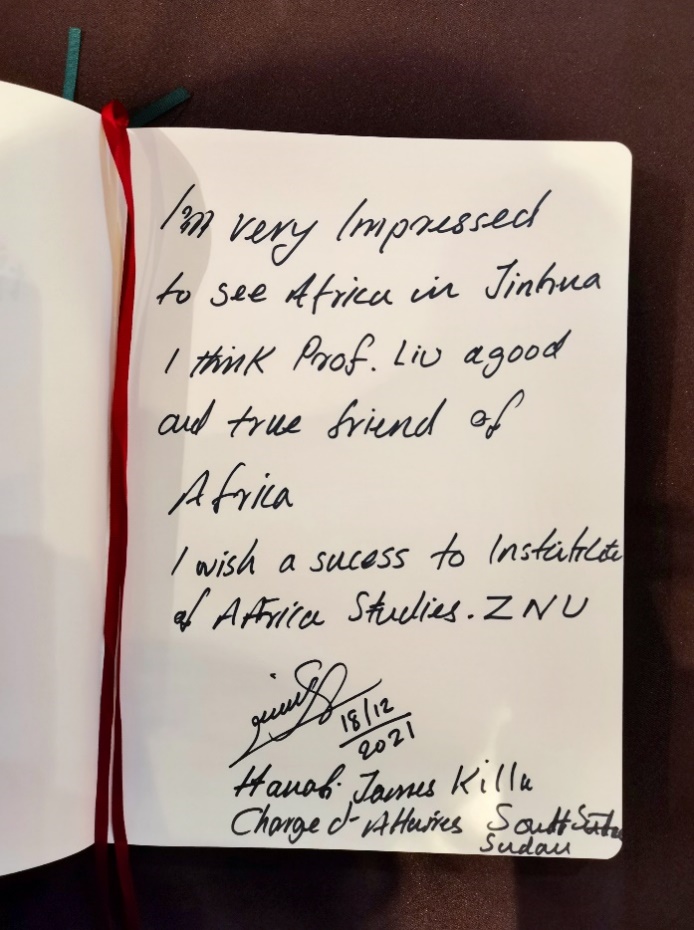 I'm very Impressed
to see Africa in Jinhua
I think Prof. Liu a good
and true friend of
Africa
I wish a sucess to Institute
of Africa Studies. ZNU
18/12
2021
James Killa
Charge d-Affaires South
Sudan